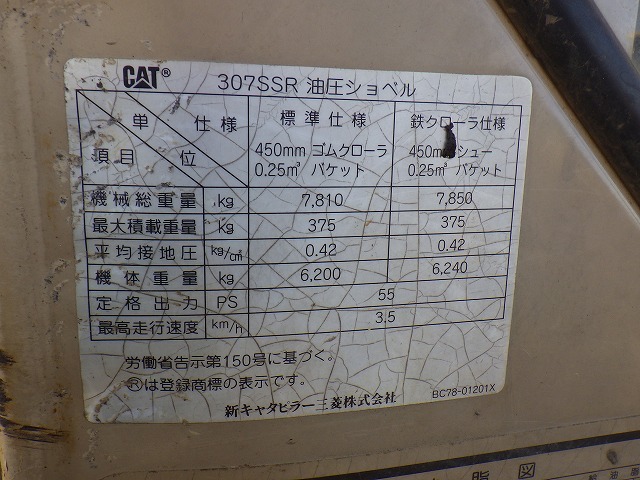 CAT®
307SSR 油圧ショベル
単 仕様 標準仕様 鉄クローラ仕様
項目 位 450mm ゴムクローラ 450mm シュー
0.25m³ バケット 0.25m³ バケット
機械総重量 kg 7,810 7,850
最大積載重量 kg 375 375
平均接地圧 kg/cm² 0.42 0.42
機体重量 kg 6,200 6,240
定格出力 PS 55
最高走行速度 km/h 3.5
労働省告示第150号に基づく。
Ⓡは登録商標の表示です。
BC78-01201X
新キャタピラー三菱株式会社
脂 図
給油